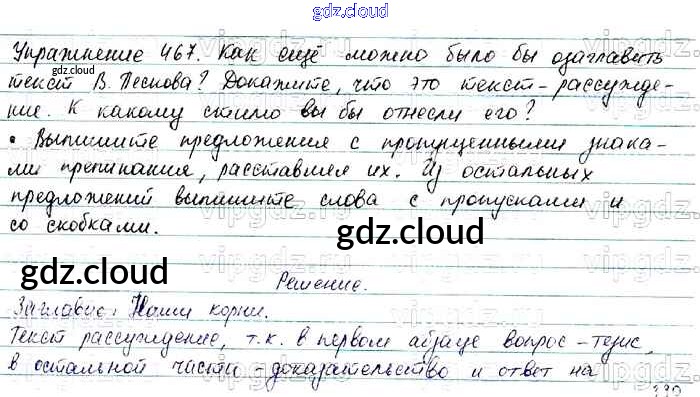 gdz.cloud
Упражнение 467. Как ещё можно было бы озаглавить
gdz.cloud
текст В. Пескова? Докажите, что это текст-рассужде-
ние. К какому стилю вы бы отнесли его?
• Выпишите предложения с пропущенными знака-
ми препинания, расставляя их. Из остальных
предложений выпишите слова с пропусками и
со скобками.
gdz.cloud
gdz.cloud
Решение.
Заглавие: Наши корни.
Текст рассуждение, т.к. в первом абзаце вопрос-тезис,
в остальной части - доказательство и ответ на
339